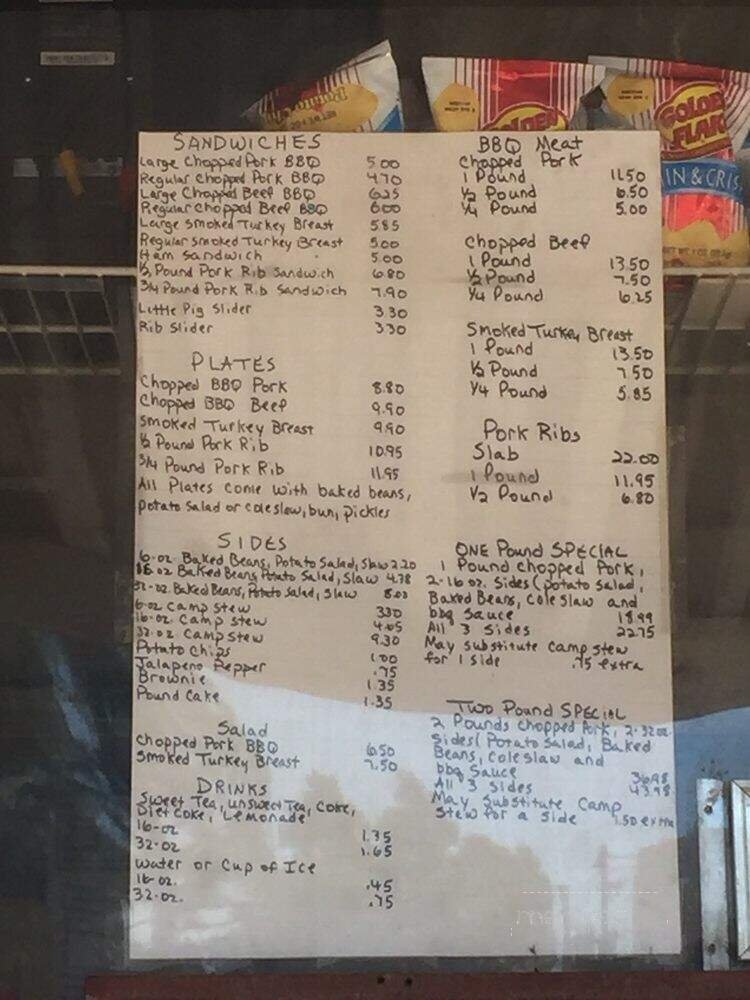 SANDWICHES
Large Chopped Pork BBQ 5.00
Regular Chopped Pork BBQ 4.70
Large Chopped Beef BBQ 6.25
Regular Chopped Beef BBQ 6.00
Large Smoked Turkey Breast 5.85
Regular Smoked Turkey Breast 5.00
Ham Sandwich 5.00
1/2 Pound Pork Rib Sandwich 6.80
3/4 Pound Pork Rib Sandwich 7.90
Little Pig Slider 3.30
Rib Slider 3.30
PLATES
Chopped BBQ Pork 8.80
Chopped BBQ Beef 9.90
Smoked Turkey Breast 9.90
1/2 Pound Pork Rib 10.95
3/4 Pound Pork Rib 11.95
All Plates come with baked beans,
potato salad or coleslaw, bun, pickles
SIDES
6-oz. Baked Beans, Potato Salad, Slaw 2.20
16 oz Baked Beans, Potato Salad, Slaw 4.78
32-oz. Baked Beans, Potato Salad, Slaw
6-oz Camp Stew 3.30
16-oz. Camp Stew
32-oz Camp Stew 9.30
Potato Chips 1.00
Jalapeno Pepper .75
Brownie 1.35
Pound Cake 1.35
Salad
Chopped Pork BBQ 6.50
Smoked Turkey Breast 7.50
DRINKS
Sweet Tea, Unsweet Tea, Coke,
Diet Coke, Lemonade
16-oz 1.35
32-oz 1.65
Water or Cup of Ice
16-oz. .45
32-oz. .75
BBQ Meat
Chopped Pork
1 Pound 11.50
1/2 Pound 6.50
1/4 Pound 5.00
Chopped Beef
1 Pound 13.50
1/2 Pound 7.50
1/4 Pound 6.25
Smoked Turkey Breast
1 Pound 13.50
1/2 Pound 7.50
1/4 Pound 5.85
Pork Ribs
Slab 22.00
1 Pound 11.95
1/2 Pound 6.80
ONE Pound SPECIAL
1 Pound chopped Pork,
2-16 oz. Sides (potato salad,
Baked Beans, Cole Slaw and
bbq Sauce 18.99
All 3 sides 22.75
May substitute Camp stew
for 1 side .75 extra
Two Pound SPECIAL
2 Pounds Chopped Pork, 2-32oz
Sides (Potato Salad, Baked
Beans, Coleslaw and
bbq Sauce 36.98
All 3 sides 43.98
May Substitute Camp
Stew for a Side 1.50 extra
GOLDEN
FLAKE